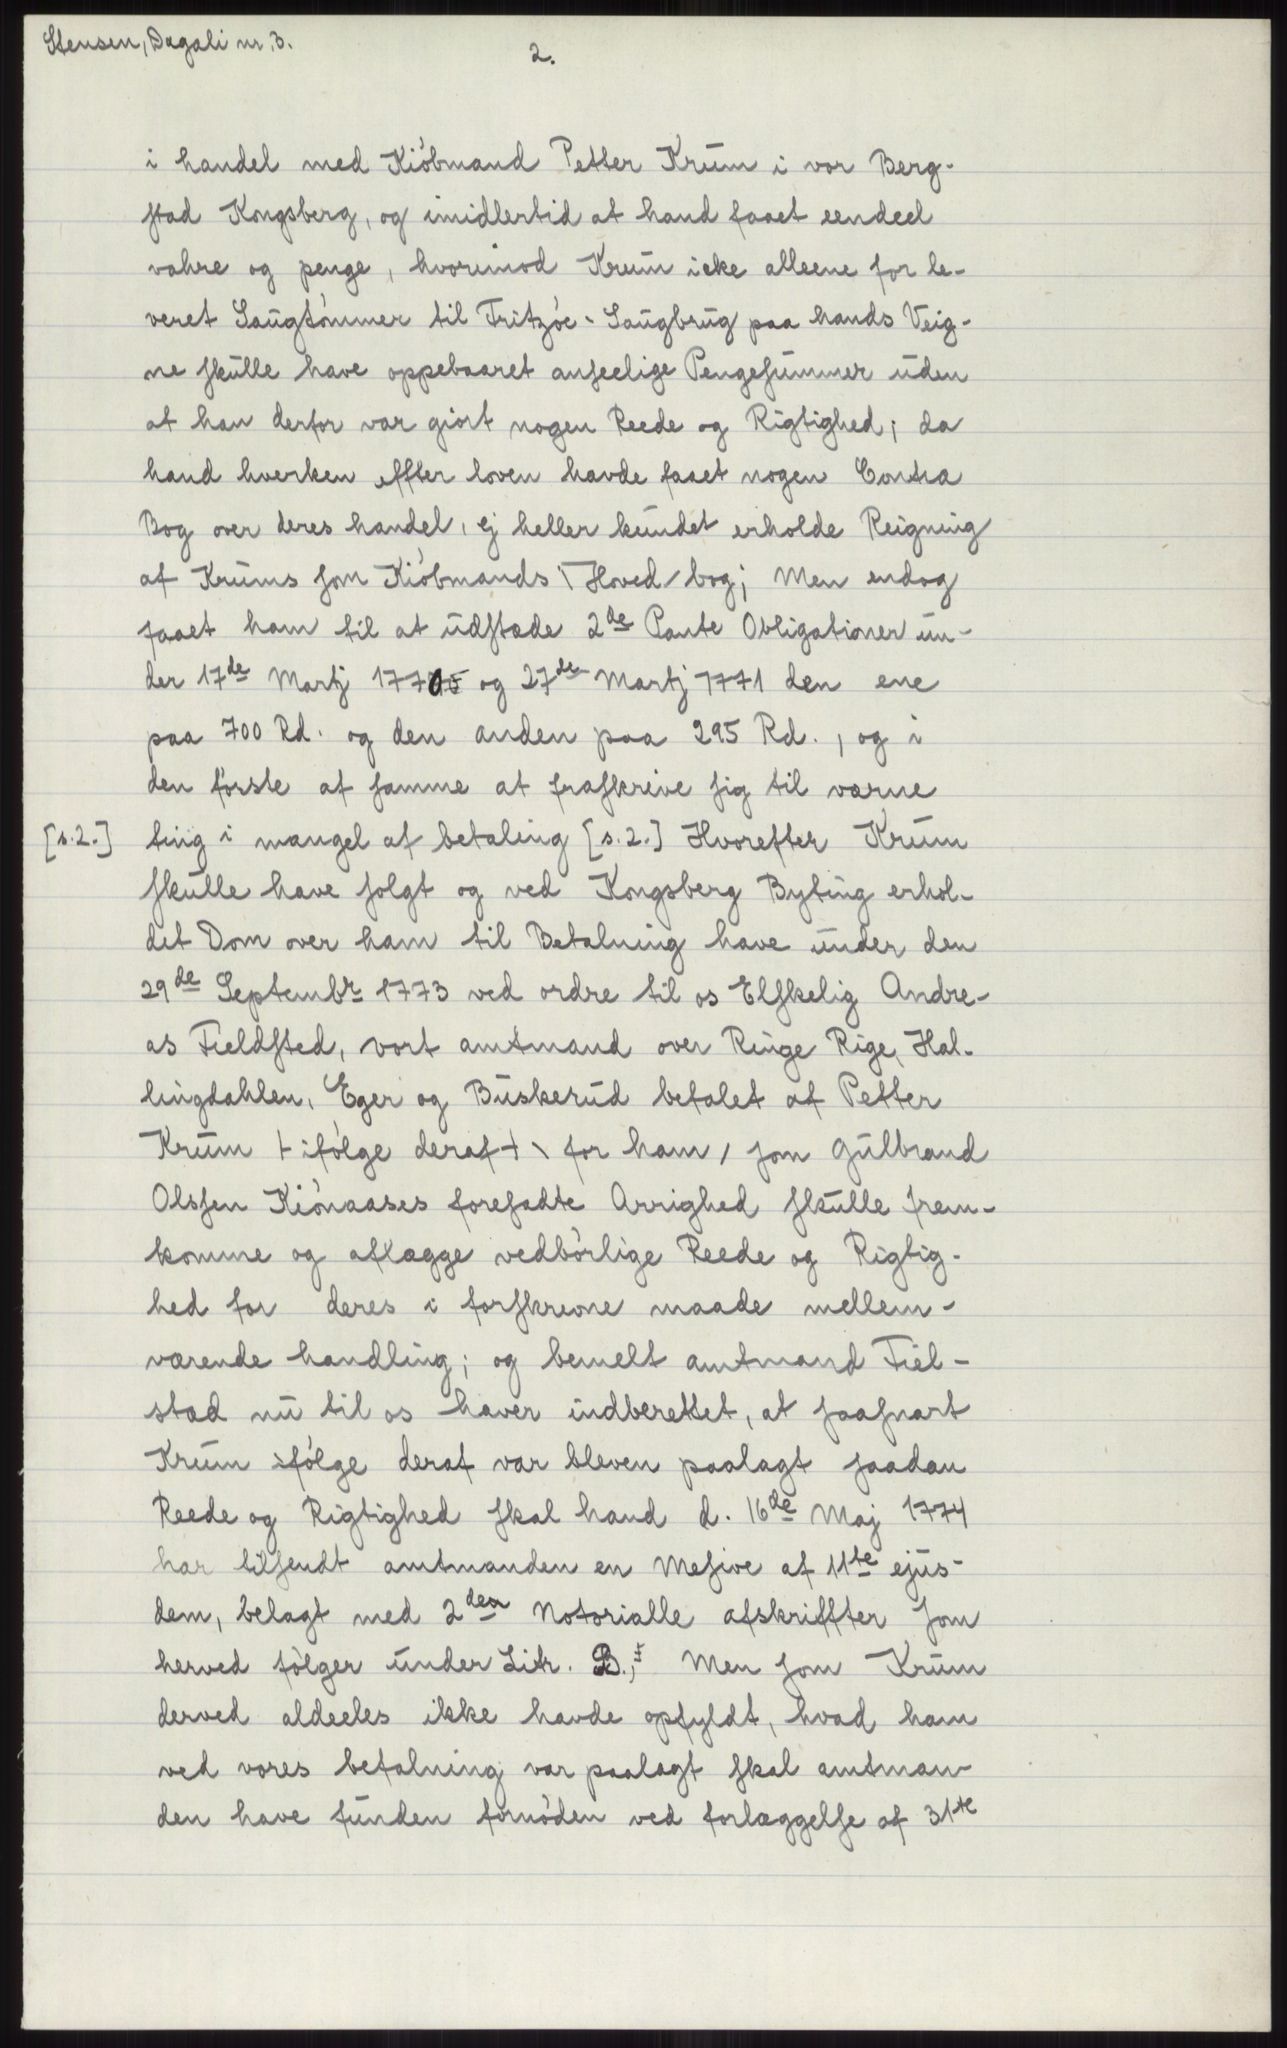 Stensen, Dagali nr. 3.
2.
i handel med Kiöbmand Petter Krum i vor Berg-
stad Kongsberg, og imidlertid at hand faaet eendeel
vahre og penge, hvorimod Krum icke alleene for le-
veret Saugtömmer til Fritzöe-Saugbrug paa hands Veig-
ne skulle have oppebaaret anseelige Pengesummer uden
at han derfor var giort nogen Reede og Rigtighed; da
hand hverken effter loven havde faaet nogen Contra
Bog over deres handel, ej heller kundet erholde Reigning
af Krums som Kiöbmands \ Hoved / bog; Men endog
faaet ham til at udstæde 2de Pante Obligationer un-
der 17de Martj 1770 og 27de Martj 1771 den ene
paa 700 Rd. og den anden paa 295 Rd., og i
den förste af samme at fraskrive sig til værne
[s.2.] ting i mangel af betaling [s.2.] Hvorefter Krum
skulle have solgt og ved Kongsberg Byting erhol-
det Dom over ham til Betalning have under den
29de Septembr 1773 ved ordre til os Elskelig Andre-
as Fieldsted, vort amtmand over Ringe Rige, Hal-
lingdahlen, Eger og Buskerud befalet at Petter
Krum + ifölge deraf + \ for ham / som Gulbrand
Olssen Kiönaases foresadte Ovrighed skulle frem-
komme og aflægge vedbörlige Reede og Rigtig-
hed for deres i forskrevne maade mellem-
værende handling; og bemelt amtmand Fiel-
stad nu til os haver indberettet, at saasnart
Krum ifölge deraf var bleven paalagt saadan
Reede og Rigtighed skal hand d. 16de Maj 1774
har tilsendt amtmanden en Mesive af 11te ejus-
dem, belagt med 2den Notorialle afskriffter som
herved fölger under Litr. B.; Men som Krum
derved aldeeles ikke havde opfyldt, hvad ham
ved vores befalning var paalagt skal amtman-
den have funden fornöden ved forlæggelse af 31te